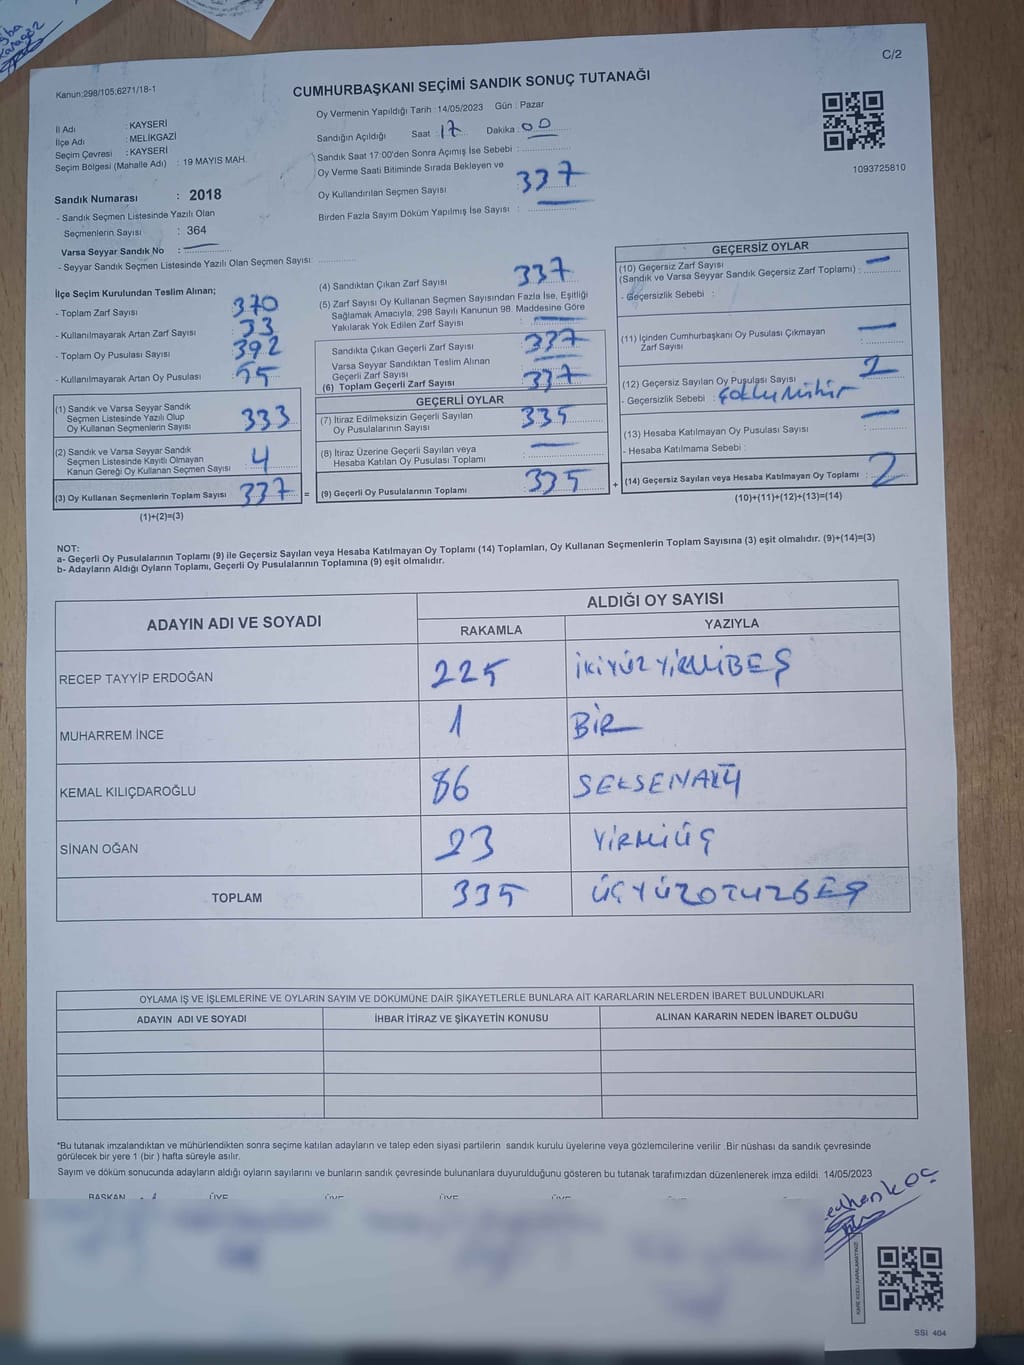 C/2
Kanun:298/105;6271/18-1
CUMHURBAŞKANI SEÇİMİ SANDIK SONUÇ TUTANAĞI
İl Adı : KAYSERİ
İlçe Adı : MELİKGAZİ
Seçim Çevresi : KAYSERİ
Seçim Bölgesi (Mahalle Adı) : 19 MAYIS MAH.
Sandık Numarası : 2018
- Sandık Seçmen Listesinde Yazılı Olan
Seçmenlerin Sayısı : 364
Varsa Seyyar Sandık No :
- Seyyar Sandık Seçmen Listesinde Yazılı Olan Seçmen Sayısı:
Oy Vermenin Yapıldığı Tarih : 14/05/2023 Gün : Pazar
Sandığın Açıldığı Saat : 17 Dakika : 00
Sandık Saat 17:00'den Sonra Açımış İse Sebebi :
Oy Verme Saati Bitiminde Sırada Bekleyen ve
Oy Kullandırılan Seçmen Sayısı : 337
Birden Fazla Sayım Döküm Yapılmış İse Sayısı :
1093725810
İlçe Seçim Kurulundan Teslim Alınan;
- Toplam Zarf Sayısı : 370
- Kullanılmayarak Artan Zarf Sayısı : 33
- Toplam Oy Pusulası Sayısı : 392
- Kullanılmayarak Artan Oy Pusulası : 55
(1) Sandık ve Varsa Seyyar Sandık
Seçmen Listesinde Yazılı Olup
Oy Kullanan Seçmenlerin Sayısı : 333
(2) Sandık ve Varsa Seyyar Sandık
Seçmen Listesinde Kayıtlı Olmayan
Kanun Gereği Oy Kullanan Seçmen Sayısı : 4
(3) Oy Kullanan Seçmenlerin Toplam Sayısı : 337 =
(1)+(2)=(3)
(4) Sandıktan Çıkan Zarf Sayısı : 337
(5) Zarf Sayısı Oy Kullanan Seçmen Sayısından Fazla İse, Eşitliği
Sağlamak Amacıyla; 298 Sayılı Kanunun 98. Maddesine Göre
Yakılarak Yok Edilen Zarf Sayısı : —
Sandıkta Çıkan Geçerli Zarf Sayısı : 337
Varsa Seyyar Sandıktan Teslim Alınan
Geçerli Zarf Sayısı : —
(6) Toplam Geçerli Zarf Sayısı : 337
GEÇERLİ OYLAR
(7) İtiraz Edilmeksizin Geçerli Sayılan
Oy Pusulalarının Sayısı : 335
(8) İtiraz Üzerine Geçerli Sayılan veya
Hesaba Katılan Oy Pusulası Toplamı : —
(9) Geçerli Oy Pusulalarının Toplamı : 335 +
GEÇERSİZ OYLAR
(10) Geçersiz Zarf Sayısı
(Sandık ve Varsa Seyyar Sandık Geçersiz Zarf Toplamı) : —
- Geçersizlik Sebebi :
(11) İçinden Cumhurbaşkanı Oy Pusulası Çıkmayan
Zarf Sayısı : —
(12) Geçersiz Sayılan Oy Pusulası Sayısı : 2
- Geçersizlik Sebebi : Çoklu Mühür
(13) Hesaba Katılmayan Oy Pusulası Sayısı : —
- Hesaba Katılmama Sebebi :
(14) Geçersiz Sayılan veya Hesaba Katılmayan Oy Toplamı : 2
(10)+(11)+(12)+(13)=(14)
NOT:
a- Geçerli Oy Pusulalarının Toplamı (9) ile Geçersiz Sayılan veya Hesaba Katılmayan Oy Toplamı (14) Toplamları, Oy Kullanan Seçmenlerin Toplam Sayısına (3) eşit olmalıdır. (9)+(14)=(3)
b- Adayların Aldığı Oyların Toplamı, Geçerli Oy Pusulalarının Toplamına (9) eşit olmalıdır.
ADAYIN ADI VE SOYADI
ALDIĞI OY SAYISI
RAKAMLA YAZIYLA
RECEP TAYYİP ERDOĞAN 225 İKİYÜZYİRMİBEŞ
MUHARREM İNCE 1 BİR
KEMAL KILIÇDAROĞLU 86 SEKSENALTI
SİNAN OĞAN 23 YİRMİÜÇ
TOPLAM 335 ÜÇYÜZOTUZBEŞ
OYLAMA İŞ VE İŞLEMLERİNE VE OYLARIN SAYIM VE DÖKÜMÜNE DAİR ŞİKAYETLERLE BUNLARA AİT KARARLARIN NELERDEN İBARET BULUNDUKLARI
ADAYIN ADI VE SOYADI İHBAR İTİRAZ VE ŞİKAYETİN KONUSU ALINAN KARARIN NEDEN İBARET OLDUĞU
*Bu tutanak imzalandıktan ve mühürlendikten sonra seçime katılan adayların ve talep eden siyasi partilerin sandık kurulu üyelerine veya gözlemcilerine verilir .Bir nüshası da sandık çevresinde
görülecek bir yere 1 (bir ) hafta süreyle asılır.
Sayım ve döküm sonucunda adayların aldığı oyların sayılarını ve bunların sandık çevresinde bulunanlara duyurulduğunu gösteren bu tutanak tarafımızdan düzenlenerek imza edildi. 14/05/2023
BAŞKAN ÜYE ÜYE ÜYE ÜYE
SSI 404